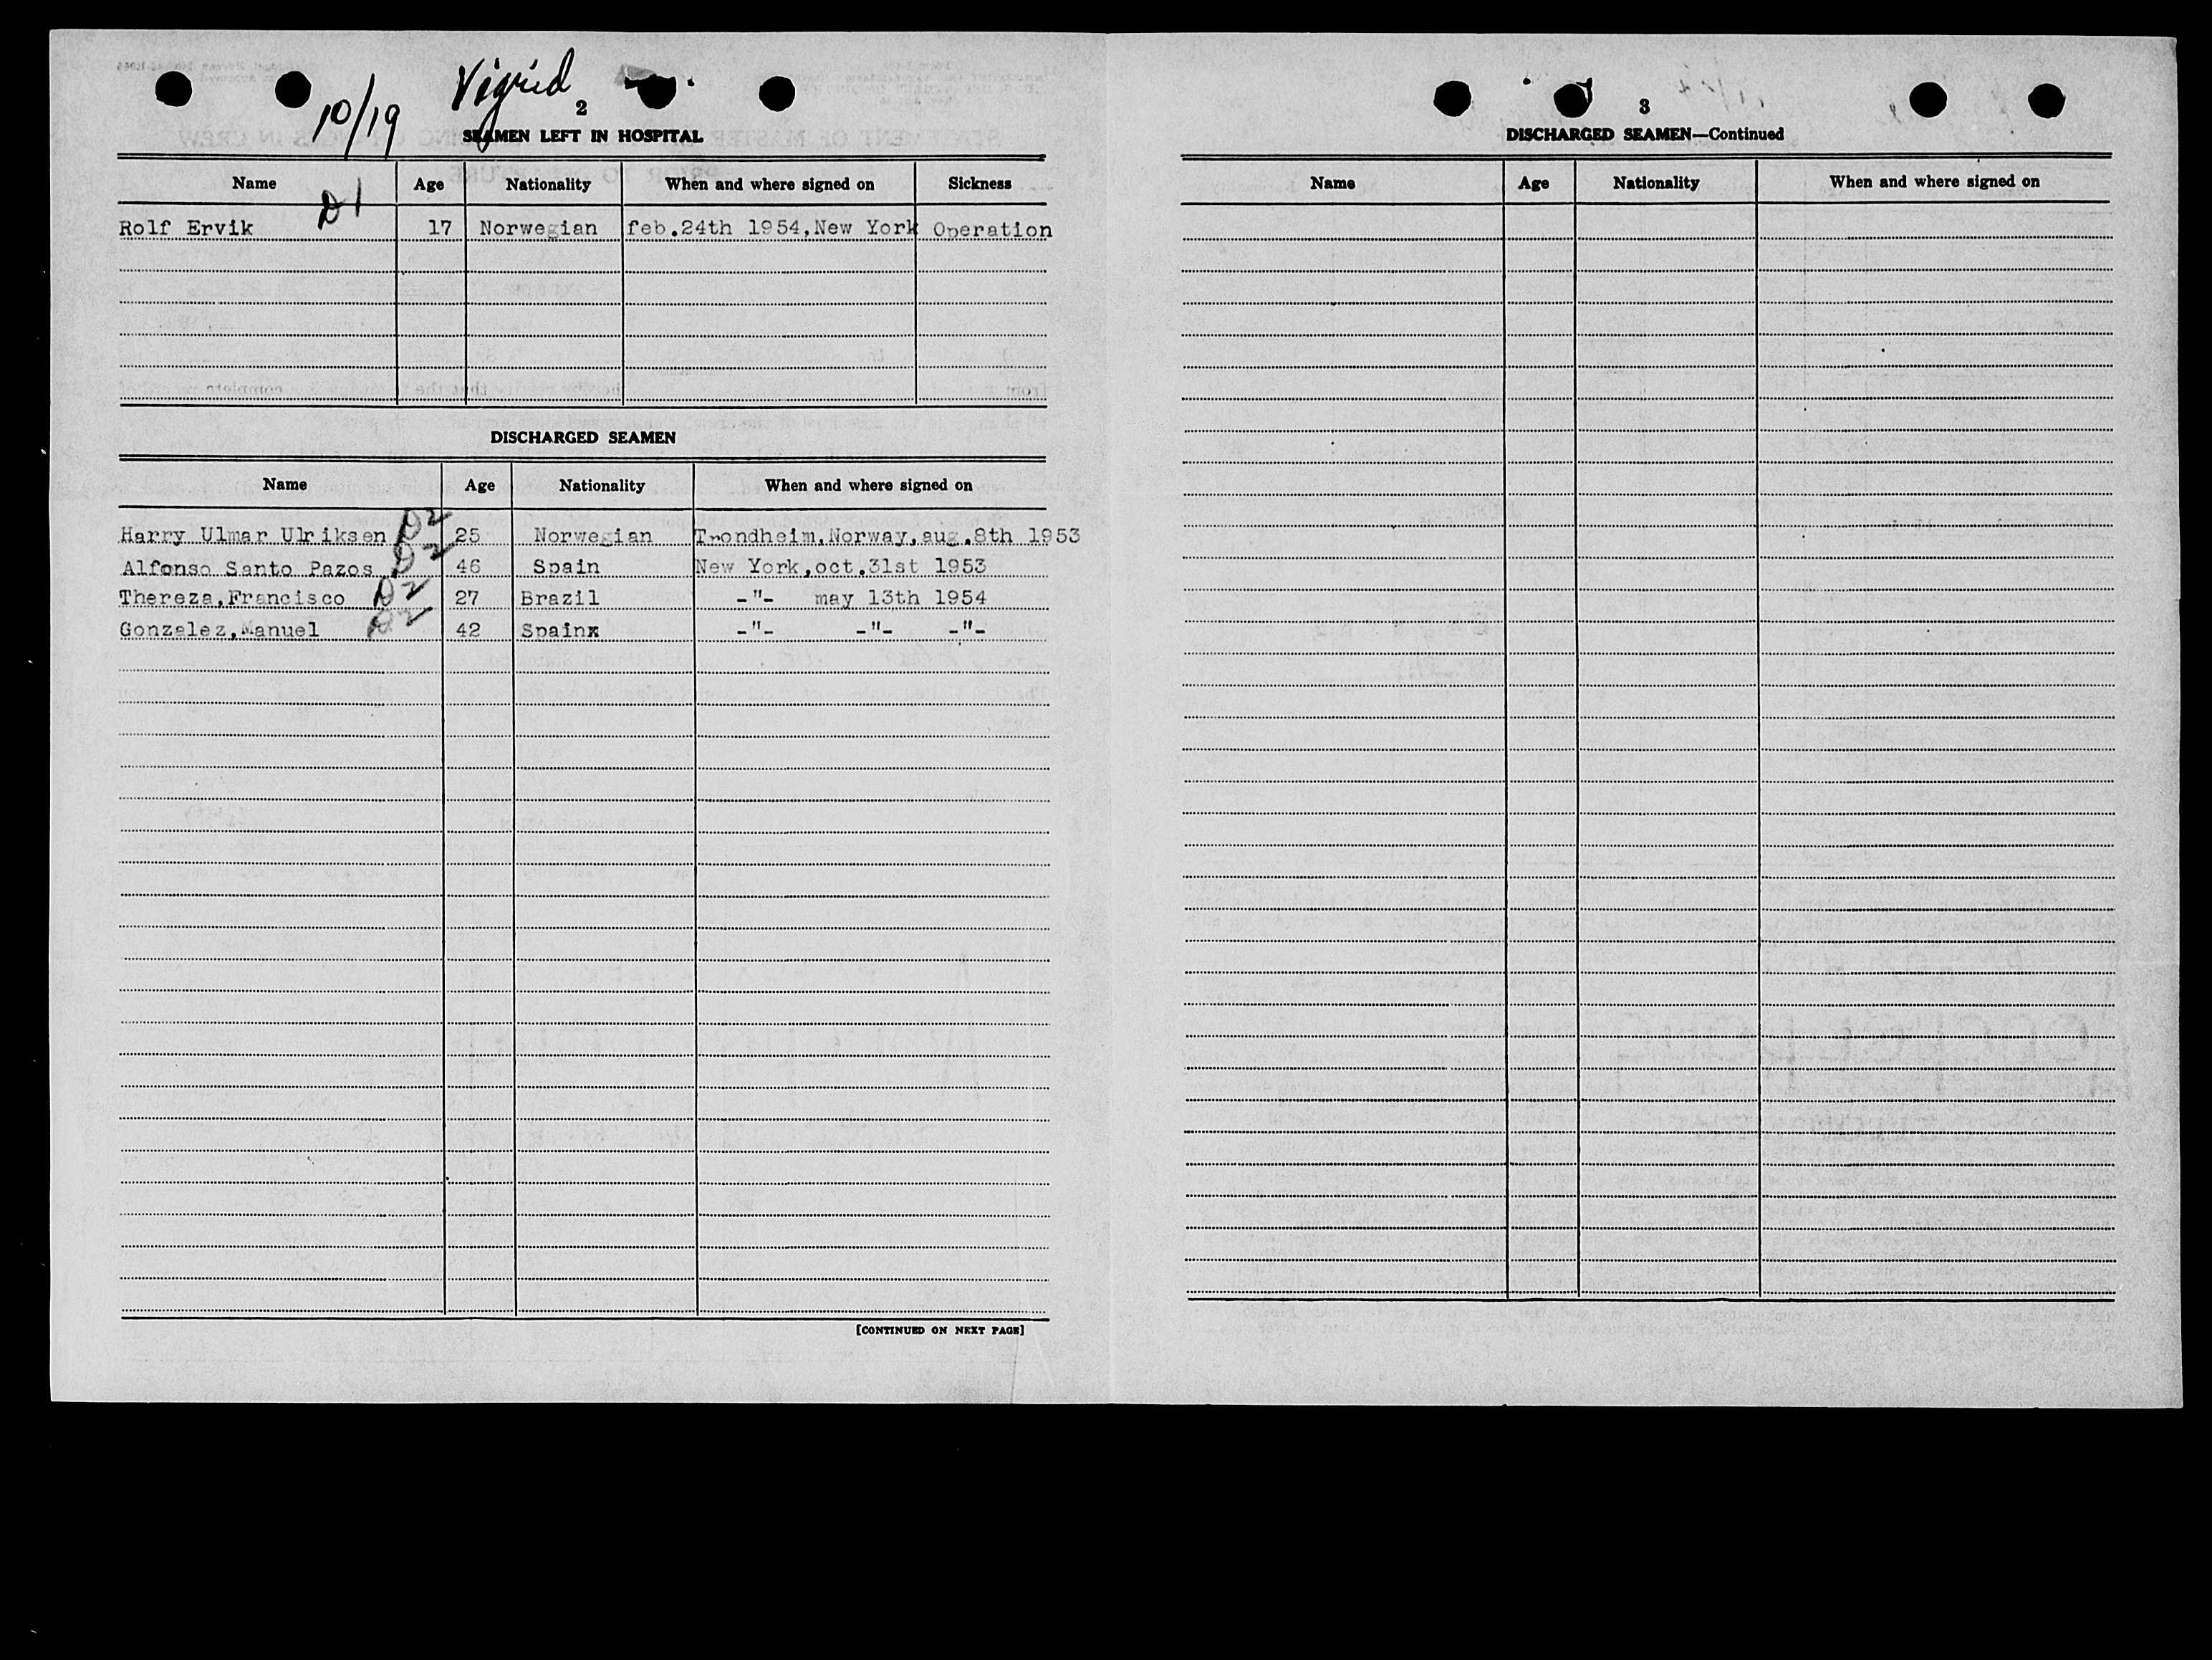 10/19 Vigrid
2
SEAMEN LEFT IN HOSPITAL
Name Age Nationality When and where signed on Sickness
D1
Rolf Ervik 17 Norwegian feb.24th 1954,New York Operation
DISCHARGED SEAMEN
Name Age Nationality When and where signed on
Harry Ulmar Ulriksen D2 25 Norwegian Trondheim,Norway,aug.8th 1953
Alfonso Santo Pazos D2 46 Spain New York,oct.31st 1953
Thereza,Francisco D2 27 Brazil -"- may 13th 1954
Gonzalez,Manuel D2 42 Spainx -"- -"- -"-
[CONTINUED ON NEXT PAGE]
3
DISCHARGED SEAMEN—Continued
Name Age Nationality When and where signed on